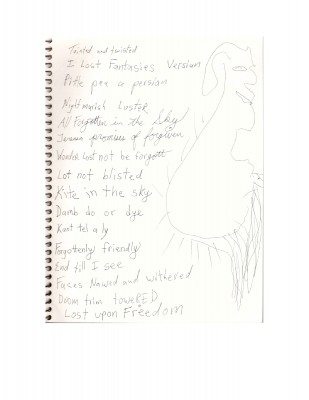 Tainted and twisted
I Lost Fantasies Version
pee a persian
Nightmarish Luster
All Forgotten in the Sky
promises of forgiven
Lost not be forgott
Lot not blisted
Kite in the sky
Dumb do or dye
Kant tel a ly
Forgottenly friendly
End till I see
Faces Nawed and withered
Doom trim towerED
Lost upon Freedom